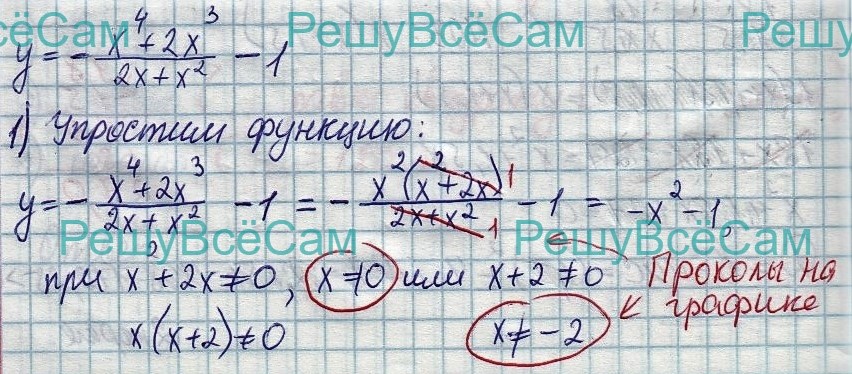 сёСам РешуВсёСам РешуВ
y = - x⁴+2x³ / 2x+x² - 1
1) Упростим функцию:
y = - x⁴+2x³ / 2x+x² - 1 = - x²(x²+2x) 1 / 2x+x² 1 - 1 = -x² - 1,
РешуВсёСам РешуВсёСам
при x²+2x≠0, x≠0 или x+2≠0 Проколы на
графике
x(x+2)≠0 x≠-2